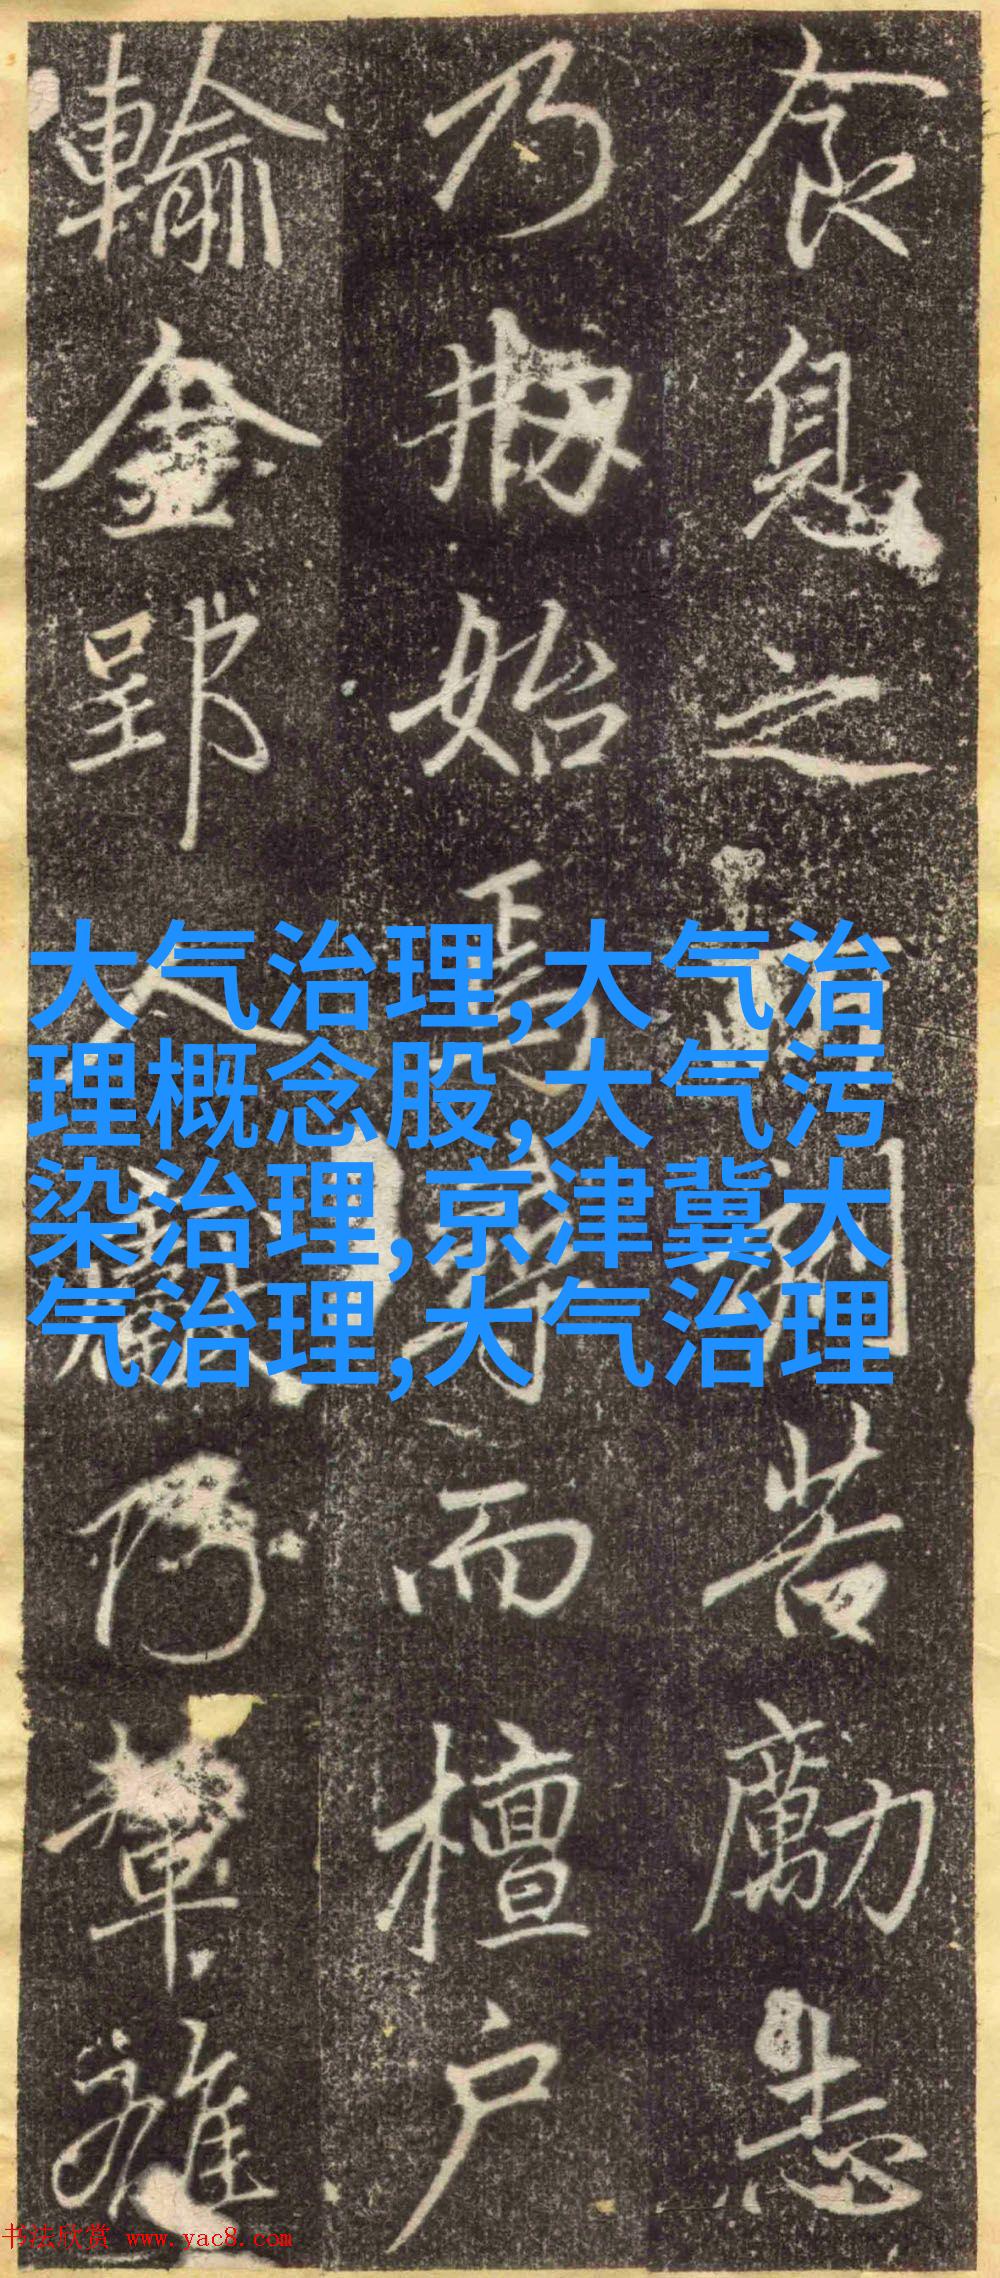 食息之
苦勵志
乃
始
而檀户
輸金郢人
乃
雖
大气治理,大气治
理概念股,大气污
染治理,京津冀大
气治理,大气治理
书法欣赏 www.yac8.com